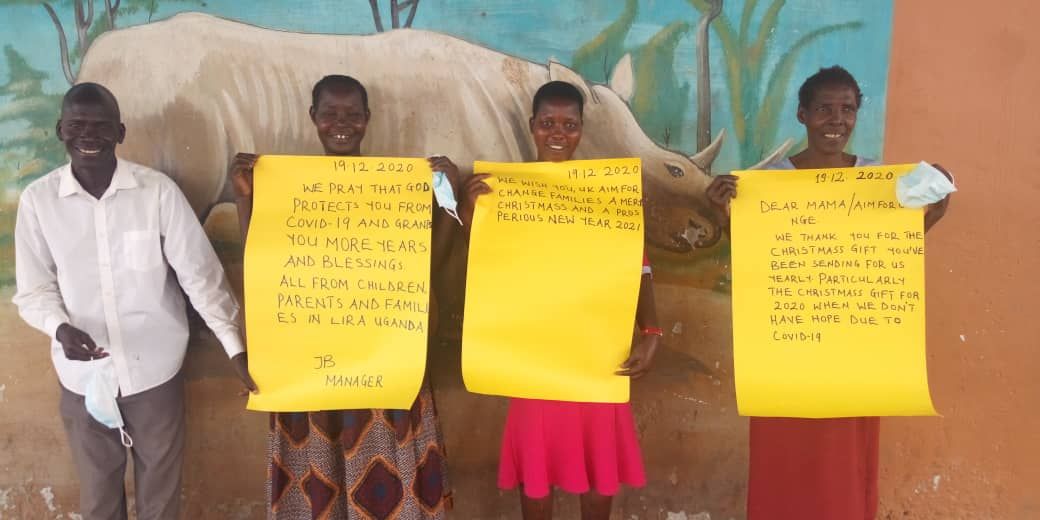 19.12.2020
WE PRAY THAT GOD
PROTECTS YOU FROM
COVID-19 AND GRANTS
YOU MORE YEARS
AND BLESSINGS.
ALL FROM CHILDREN,
PARENTS AND FAMILI
ES IN LIRA UGANDA
JB
MANAGER
19.12.2020
WE WISH YOU, UK AIM FOR
CHANGE FAMILIES A MERY
CHRISTMASS AND A PROS
PERIOUS NEW YEAR 2021
19.12.2020
DEAR MAMA/AIMFOR
NGE
WE THANK YOU FOR THE
CHRISTMASS GIFT YOU'VE
BEEN SENDING FOR US
YEARLY. PARTICULARLY
THE CHRISTMASS GIFT FOR
2020 WHEN WE DON'T
HAVE HOPE DUE TO
COVID-19